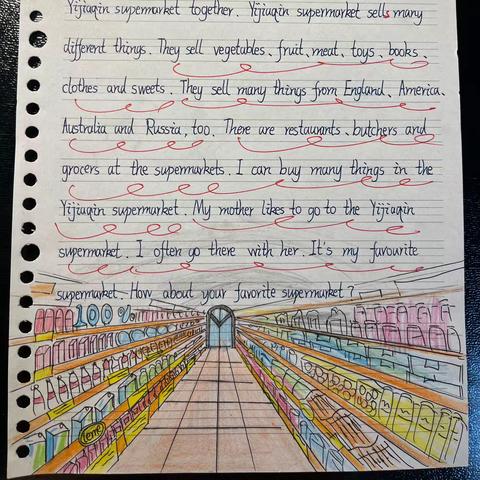 Yijiaqin supermarket together. Yijiaqin supermarket sells many
different things. They sell vegetables、fruit、meat、toys、books、
clothes and sweets. They sell many things from England、America、
Australia and Russia, too. There are restaurants、butchers and
grocers at the supermarkets. I can buy many things in the
Yijiaqin supermarket. My mother likes to go to the Yijiaqin
supermarket. I often go there with her. It's my favourite
supermarket. How about your favorite supermarket?
100%